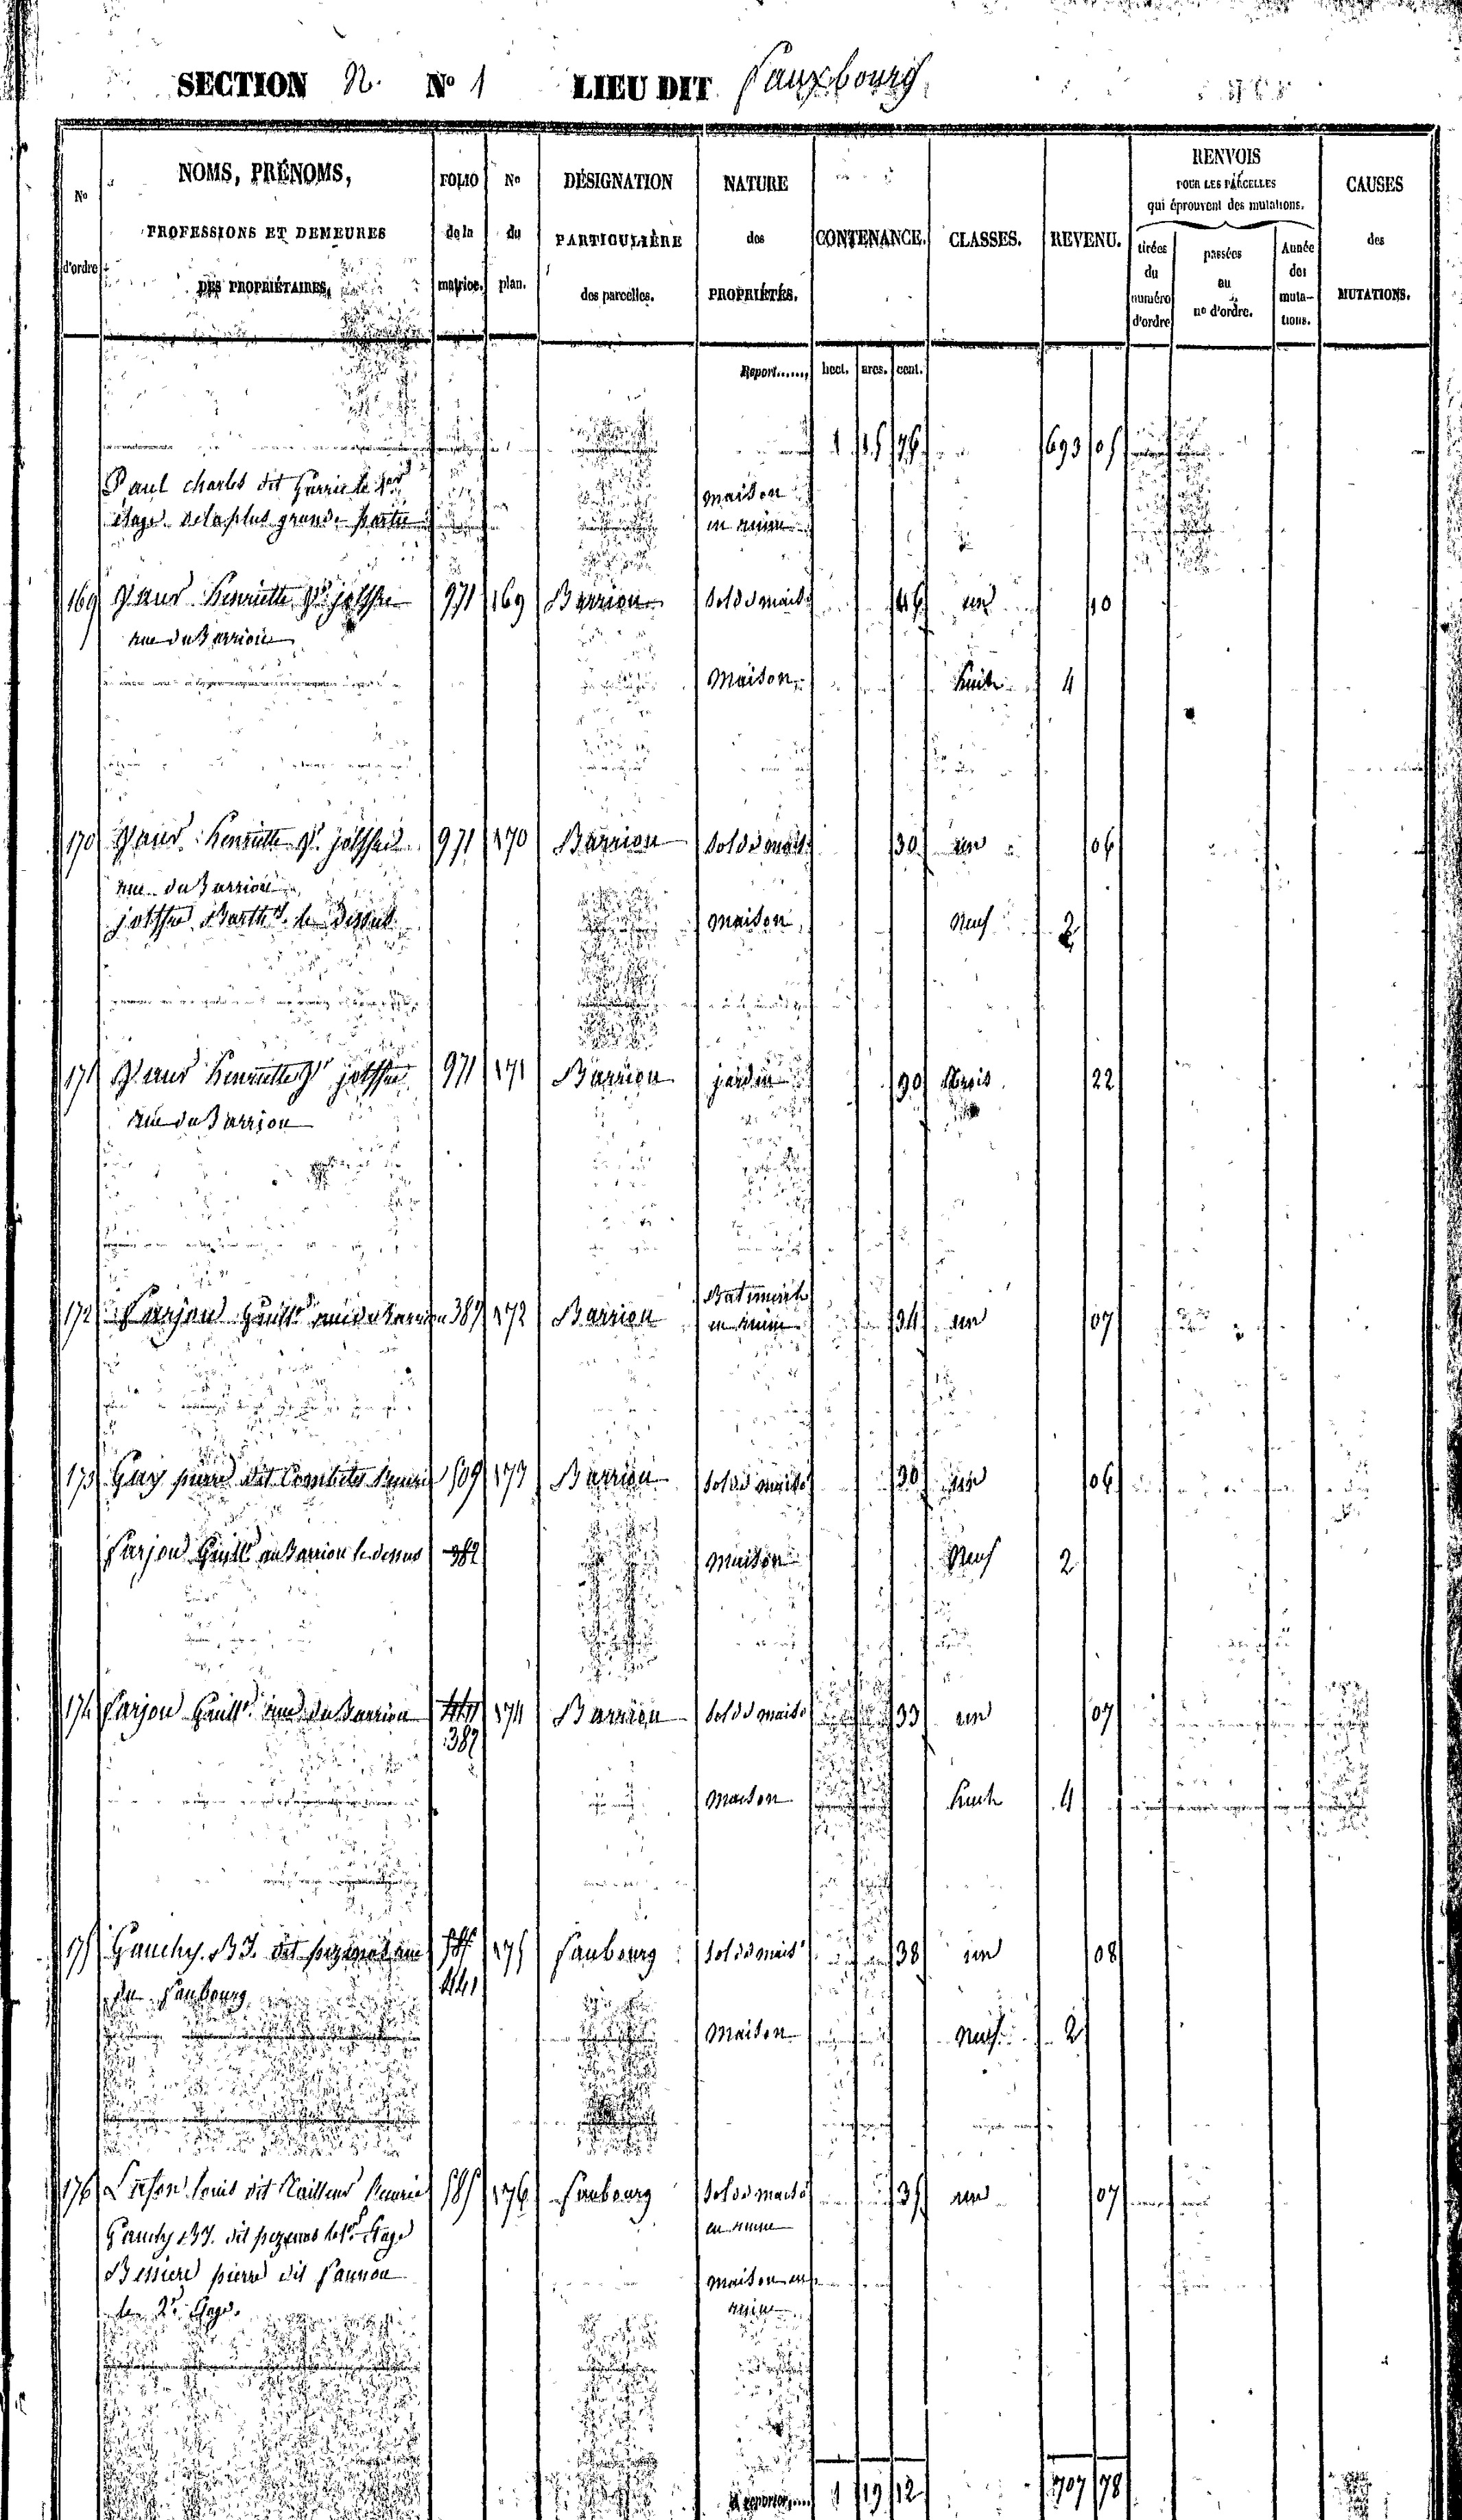 SECTION N. No 1 LIEU DIT Fauxbourg
No d'ordre
NOMS, PRÉNOMS, PROFESSIONS ET DEMEURES DES PROPRIÉTAIRES,
FOLIO de la matrice.
No du plan.
DÉSIGNATION PARTICULIÈRE des parcelles.
NATURE des PROPRIÉTÉS.
CONTENANCE.
CLASSES.
REVENU.
RENVOIS POUR LES PARCELLES qui éprouvent des mutations.
tirées du numéro d'ordre
passées au no d'ordre.
Année des muta-tions.
CAUSES des MUTATIONS.
Report...... hect. ares. cent.
1 15 76 693 05
Paul charles dit le 1er maison
étage de la plus grande partie en ruine
169 henriette 971 169 Barriou Sol de maison 46 un 10
rue du Barriou
Maison huit 4
170 henriette 971 170 Barriou Sol de mais. 30 un 06
rue du Barriou
Barth. le dessus maison Neuf 2
171 henriette 971 171 Barriou jardin 90 trois 22
rue du Barriou
172 Farjou Guill. rue du Barriou 387 172 Barriou Batiment en ruine 34 un 07
173 Guy pierre dit 509 173 Barriou Sol de maiso 30 un 06
Farjou Guill. au Barriou le dessus 387 maison Neuf 2
174 Farjou Guill. rue du Barriou 387 174 Barriou Sol de maiso 33 un 07
maison huit 4
175 Gauchy B.J. dit pezenas rue 175 faubourg Sol de mais 38 un 08
du faubourg 441
Maison Neuf 2
176 louis dit 585 176 faubourg Sol de maiso 35 un 07
Gauchy B.J. dit pezenas le 1er étage en ruine
Bessiere pierre dit maison en
le 2e étage. ruine
A reporter..... 1 19 12 707 78